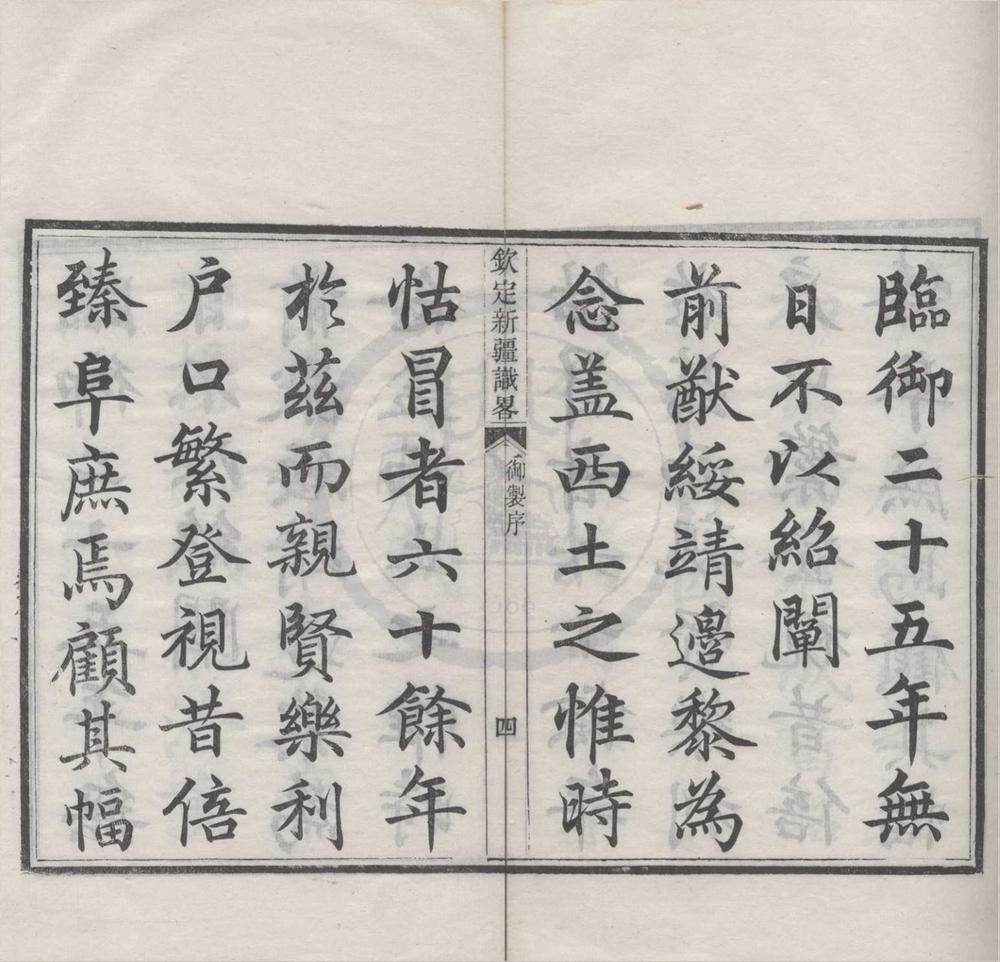 臨御二十五年無
日不以紹闡
前猷綏靖邉黎為
念盖西土之惟時
欽定新疆識畧
御製序
四
怙冒者六十餘年
於兹而親賢樂利
户口繁登視昔倍
臻阜庶焉顧其幅